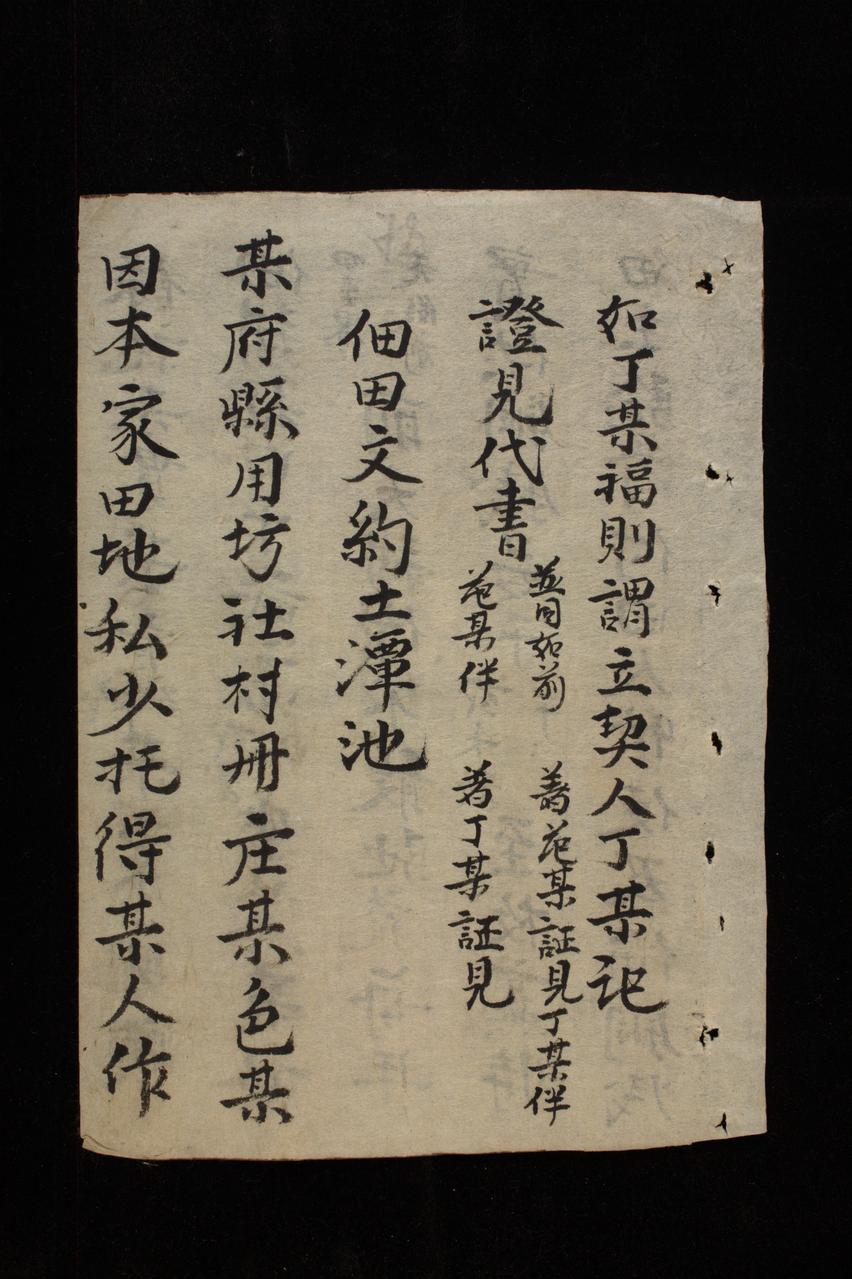 如丁某福則謂立契人丁某記
證見代書
並同如前
范某伴
著范某証見丁某伴
若丁某証見
佃田文約土潭池
某府縣用坊社村冊庄某色某
因本家田地私少托得某人作